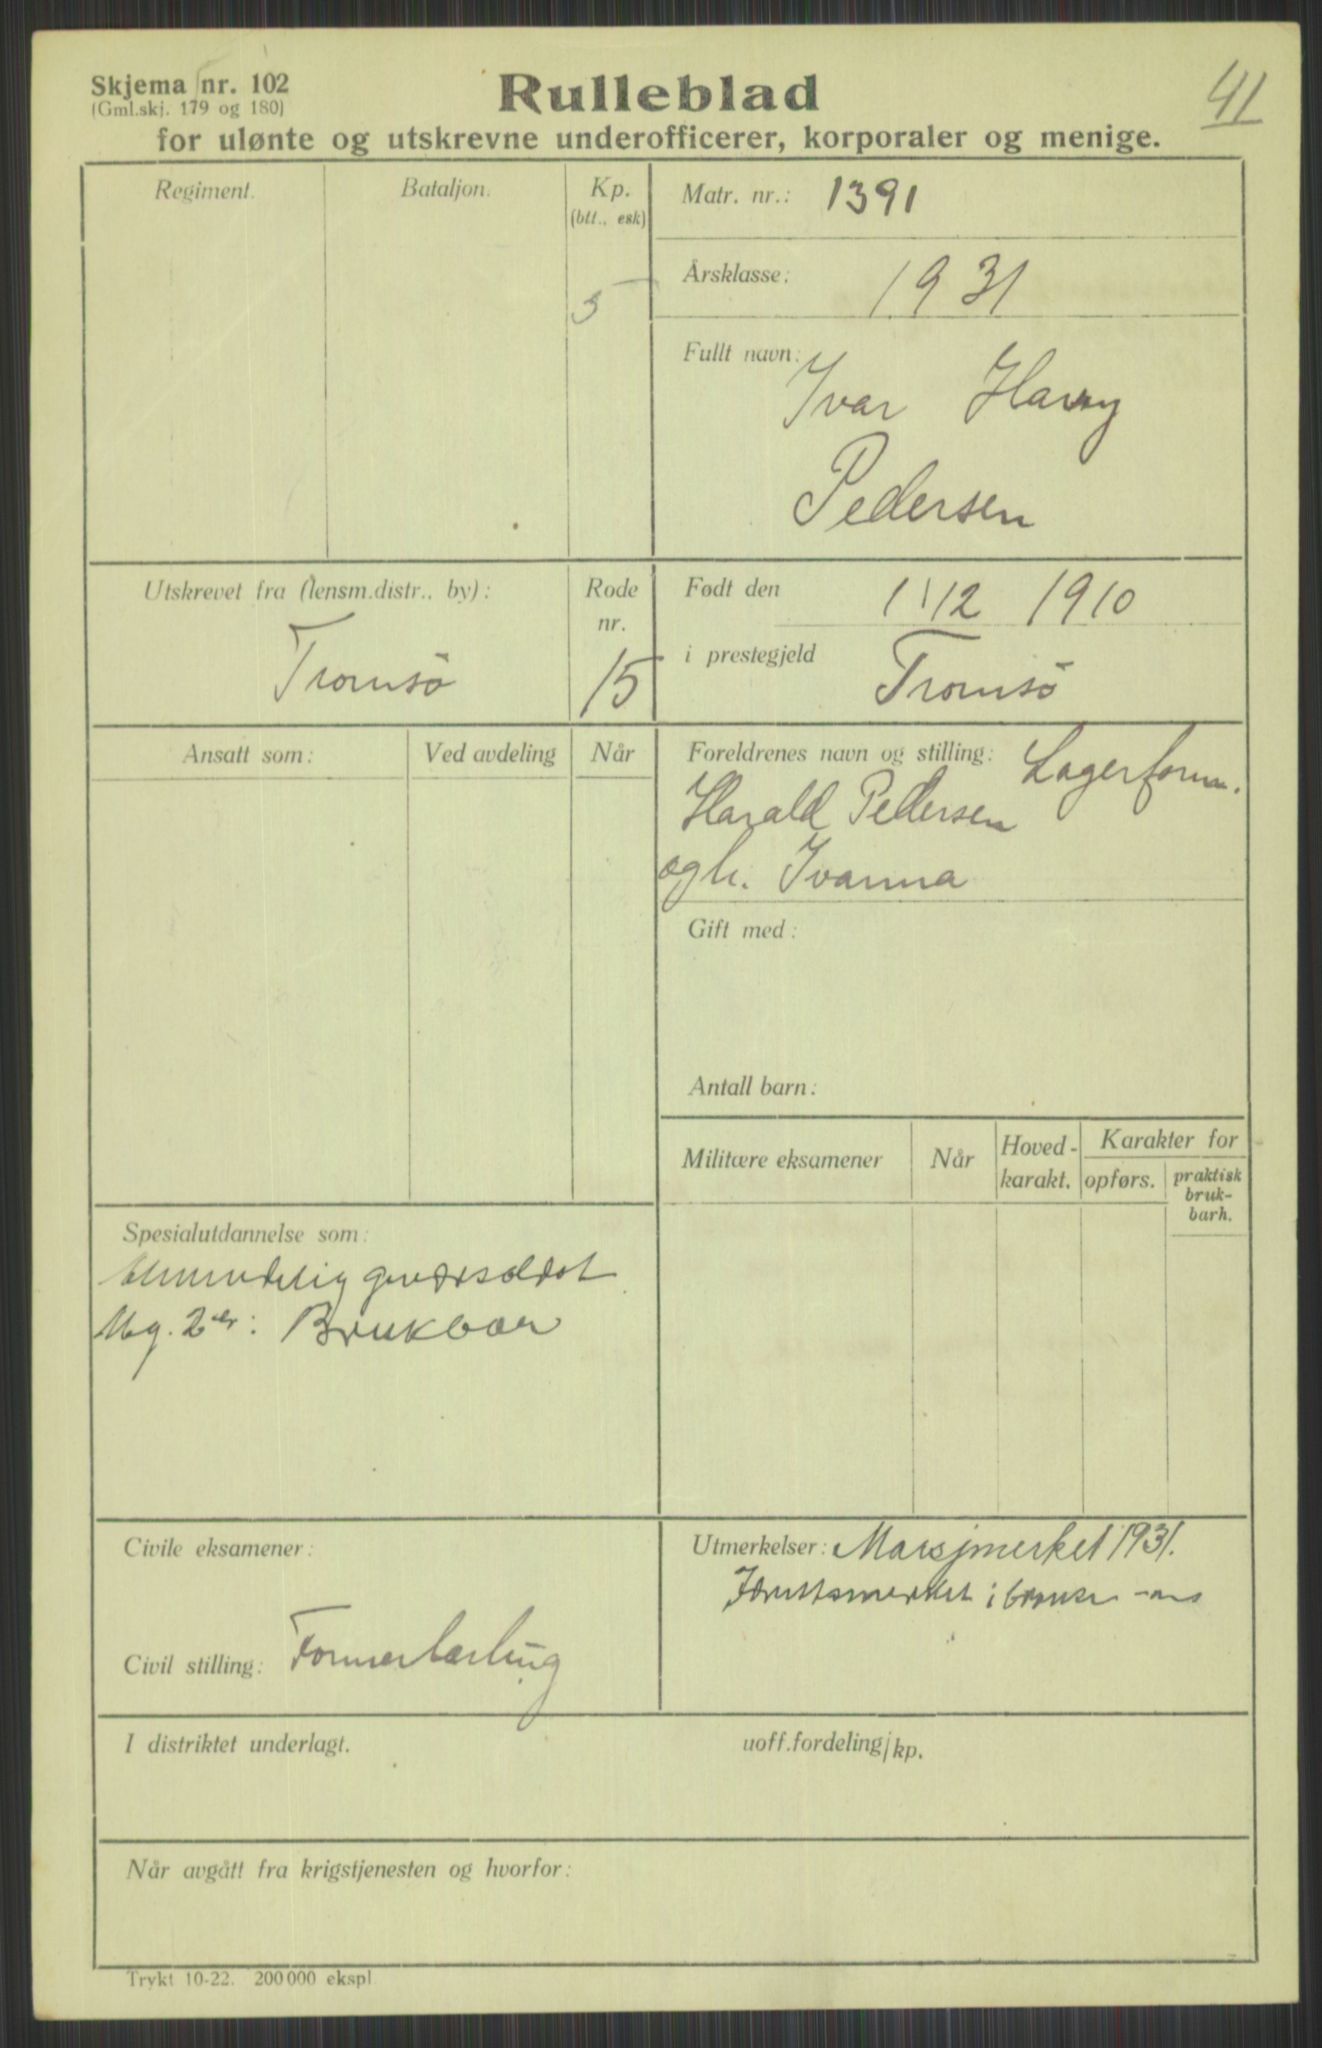 Skjema nr. 102
(Gml.skj. 179 og 180)
Rulleblad
41
for ulønte og utskrevne underofficerer, korporaler og menige.
Regiment.
Bataljon.
Kp.
(btt., esk)
5
Matr. nr.: 1391
Årsklasse: 1931
Fullt navn: Ivar Harry
Pedersen
Utskrevet fra (lensm.distr., by):
Tromsö
Rode
nr.
15
Født den 1/12 1910
i prestegjeld Tromsö
Ansatt som:
Ved avdeling
Når
Foreldrenes navn og stilling: Lagerform.
Harald Pedersen
og h. Ivanna
Gift med:
Antall barn:
Militære eksamener
Når
Hoved-
karakt.
Karakter for
opførs.
praktisk
bruk-
barh.
Spesialutdannelse som:
Almindelig geværsoldat
Mg. 2er: Brukbar
Civile eksamener:
Civil stilling: Formerlærling
Utmerkelser: Marsjmerket 1931.
Idrettsmerket i bronse
I distriktet underlagt.
uoff.fordeling/kp.
Når avgått fra krigstjenesten og hvorfor:
Trykt 10-22. 200 000 ekspl